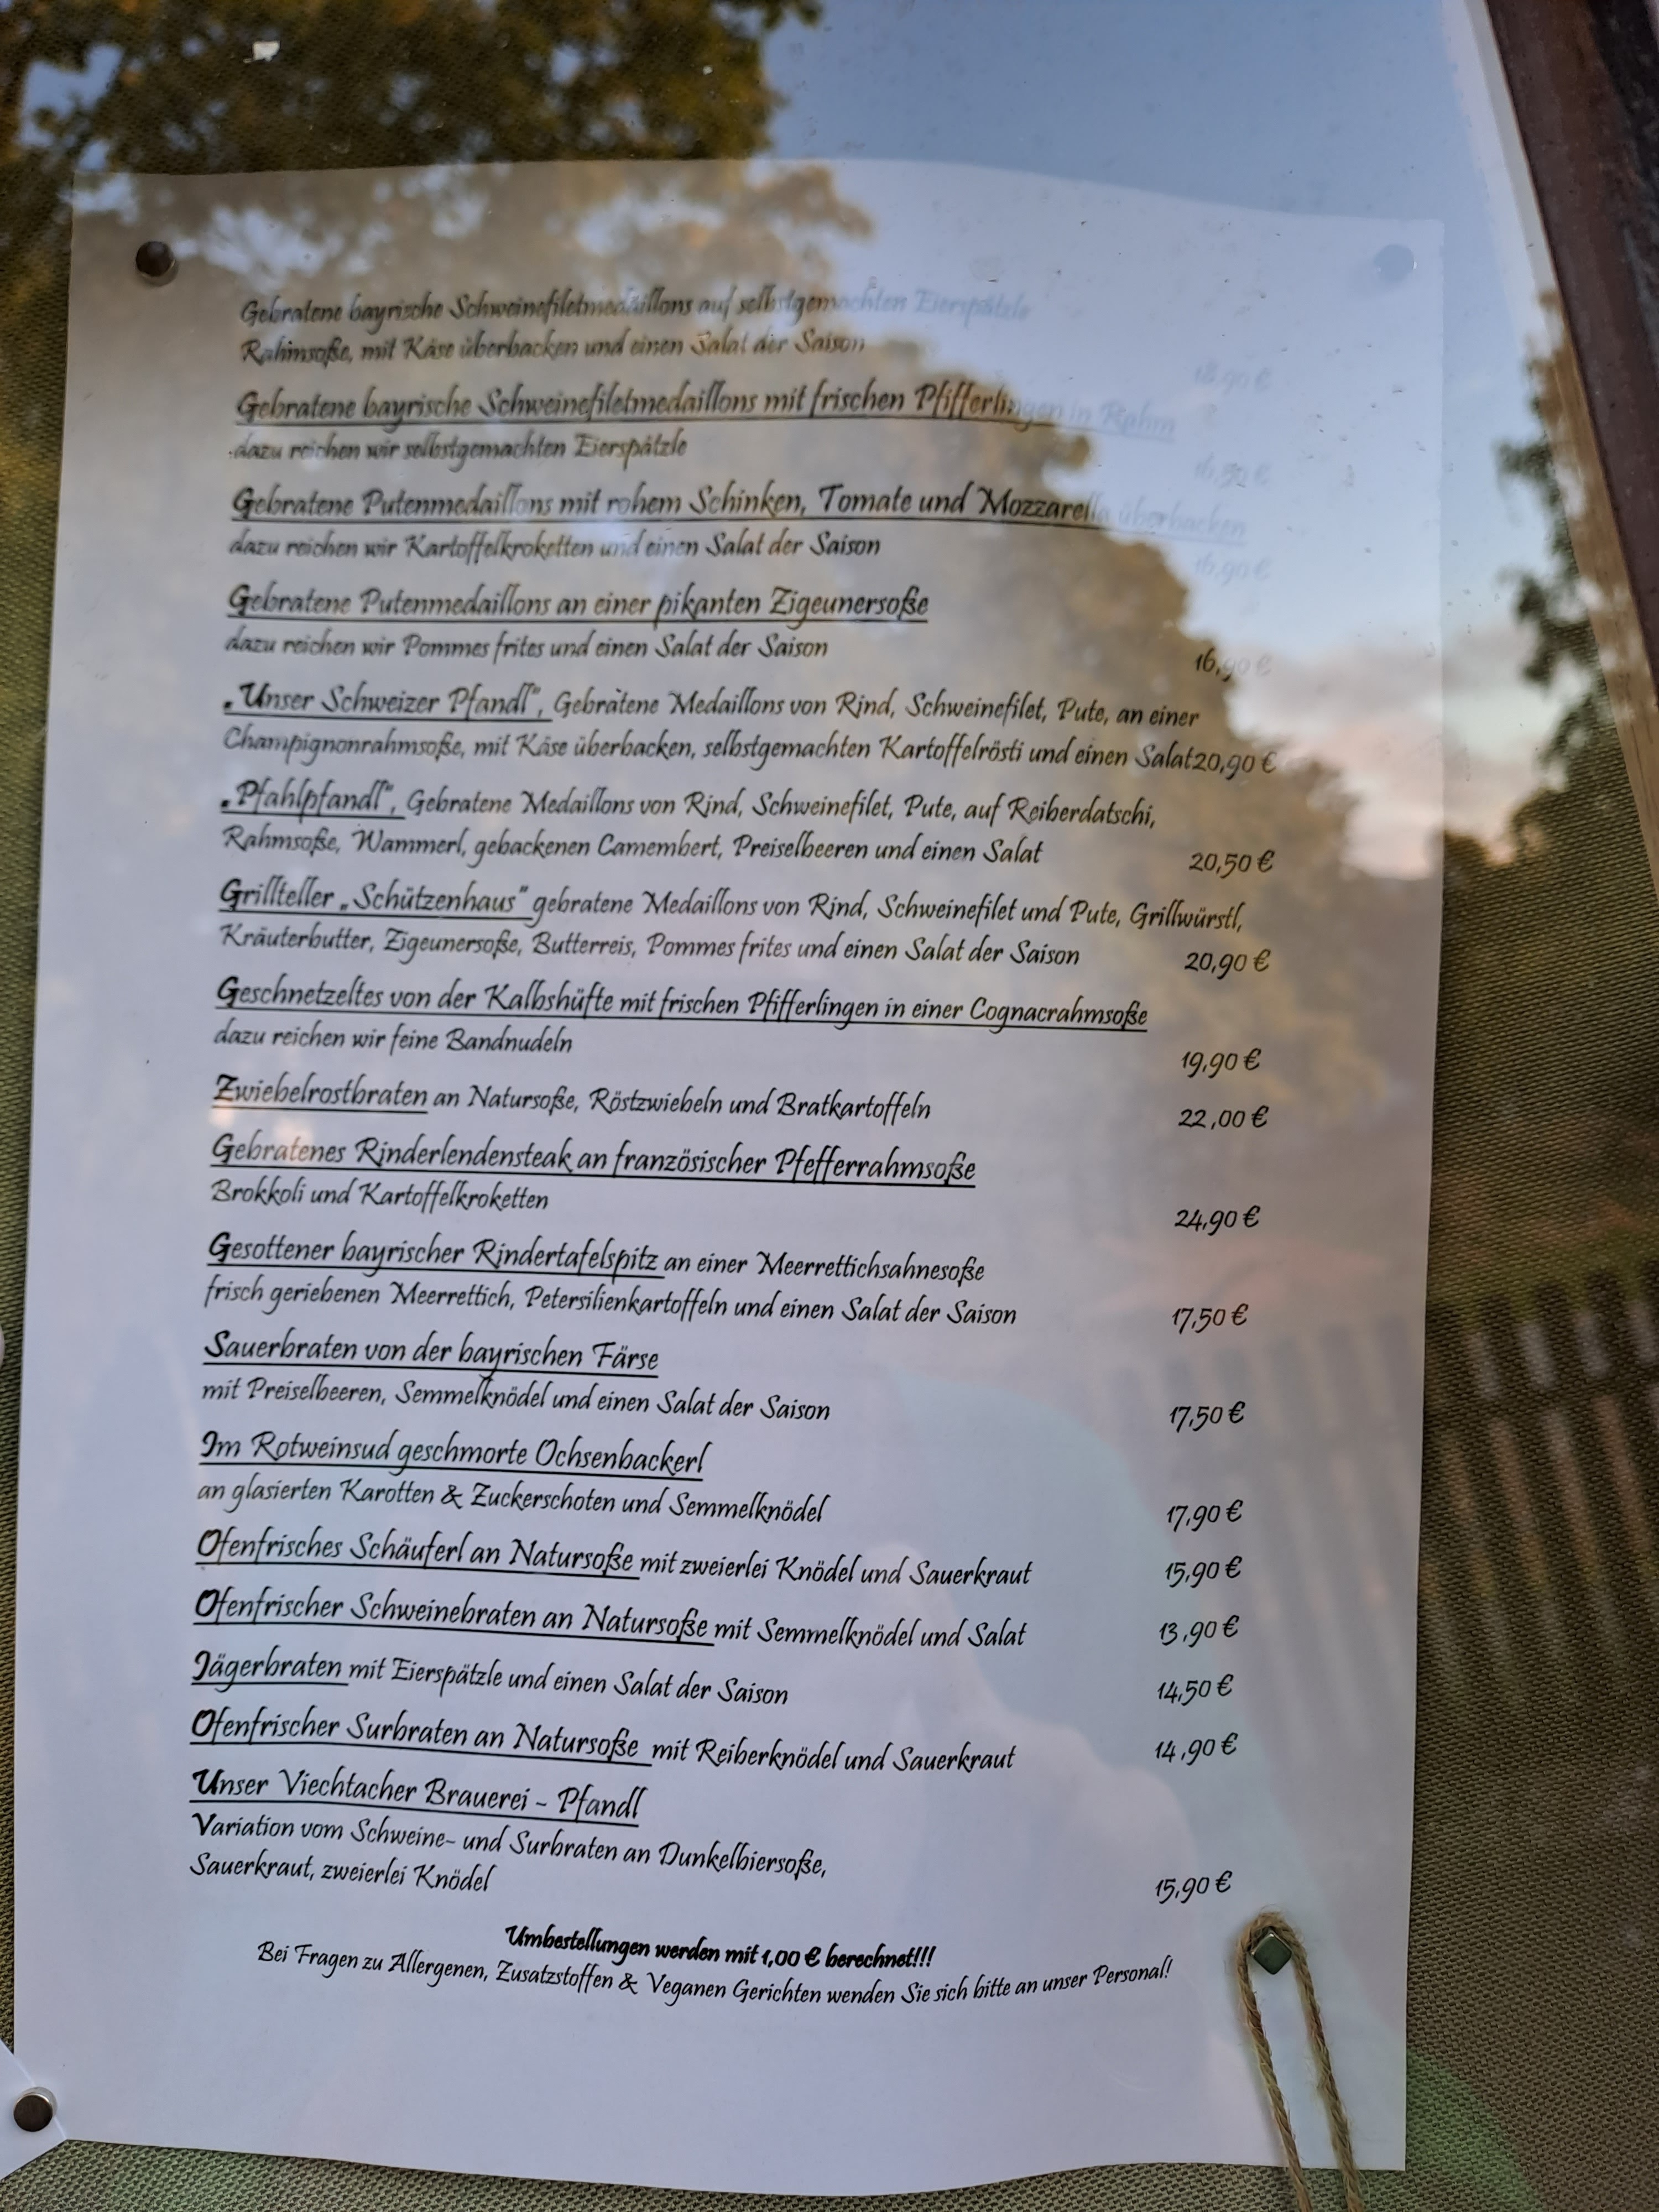 Gebratene bayrische Schweinefiletmedaillons auf selbstgemachten Eierspätzle
Rahmsoße, mit Käse überbacken und einen Salat der Saison
18,90 €
Gebratene bayrische Schweinefiletmedaillons mit frischen Pfifferlingen in Rahm
dazu reichen wir selbstgemachten Eierspätzle
Gebratene Putenmedaillons mit rohem Schinken, Tomate und Mozzarella überbacken
dazu reichen wir Kartoffelkroketten und einen Salat der Saison
16,90 €
Gebratene Putenmedaillons an einer pikanten Zigeunersoße
dazu reichen wir Pommes frites und einen Salat der Saison 16,90 €
„Unser Schweizer Pfandl", Gebratene Medaillons von Rind, Schweinefilet, Pute, an einer
Champignonrahmsoße, mit Käse überbacken, selbstgemachten Kartoffelrösti und einen Salat20,90 €
„Pfahlpfandl", Gebratene Medaillons von Rind, Schweinefilet, Pute, auf Reiberdatschi,
Rahmsoße, Wammerl, gebackenen Camembert, Preiselbeeren und einen Salat 20,50 €
Grillteller „Schützenhaus" gebratene Medaillons von Rind, Schweinefilet und Pute, Grillwürstl,
Kräuterbutter, Zigeunersoße, Butterreis, Pommes frites und einen Salat der Saison 20,90 €
Geschnetzeltes von der Kalbshüfte mit frischen Pfifferlingen in einer Cognacrahmsoße
dazu reichen wir feine Bandnudeln 19,90 €
Zwiebelrostbraten an Natursoße, Röstzwiebeln und Bratkartoffeln 22,00 €
Gebratenes Rinderlendensteak an französischer Pfefferrahmsoße
Brokkoli und Kartoffelkroketten 24,90 €
Gesottener bayrischer Rindertafelspitz an einer Meerrettichsahnesoße
frisch geriebenen Meerrettich, Petersilienkartoffeln und einen Salat der Saison 17,50 €
Sauerbraten von der bayrischen Färse
mit Preiselbeeren, Semmelknödel und einen Salat der Saison 17,50 €
Im Rotweinsud geschmorte Ochsenbackerl
an glasierten Karotten & Zuckerschoten und Semmelknödel 17,90 €
Ofenfrisches Schäuferl an Natursoße mit zweierlei Knödel und Sauerkraut 15,90 €
Ofenfrischer Schweinebraten an Natursoße mit Semmelknödel und Salat 13,90 €
Jägerbraten mit Eierspätzle und einen Salat der Saison 14,50 €
Ofenfrischer Surbraten an Natursoße mit Reiberknödel und Sauerkraut 14,90 €
Unser Viechtacher Brauerei - Pfandl
Variation vom Schweine- und Surbraten an Dunkelbiersoße,
Sauerkraut, zweierlei Knödel 15,90 €
Umbestellungen werden mit 1,00 € berechnet!!!
Bei Fragen zu Allergenen, Zusatzstoffen & Veganen Gerichten wenden Sie sich bitte an unser Personal!